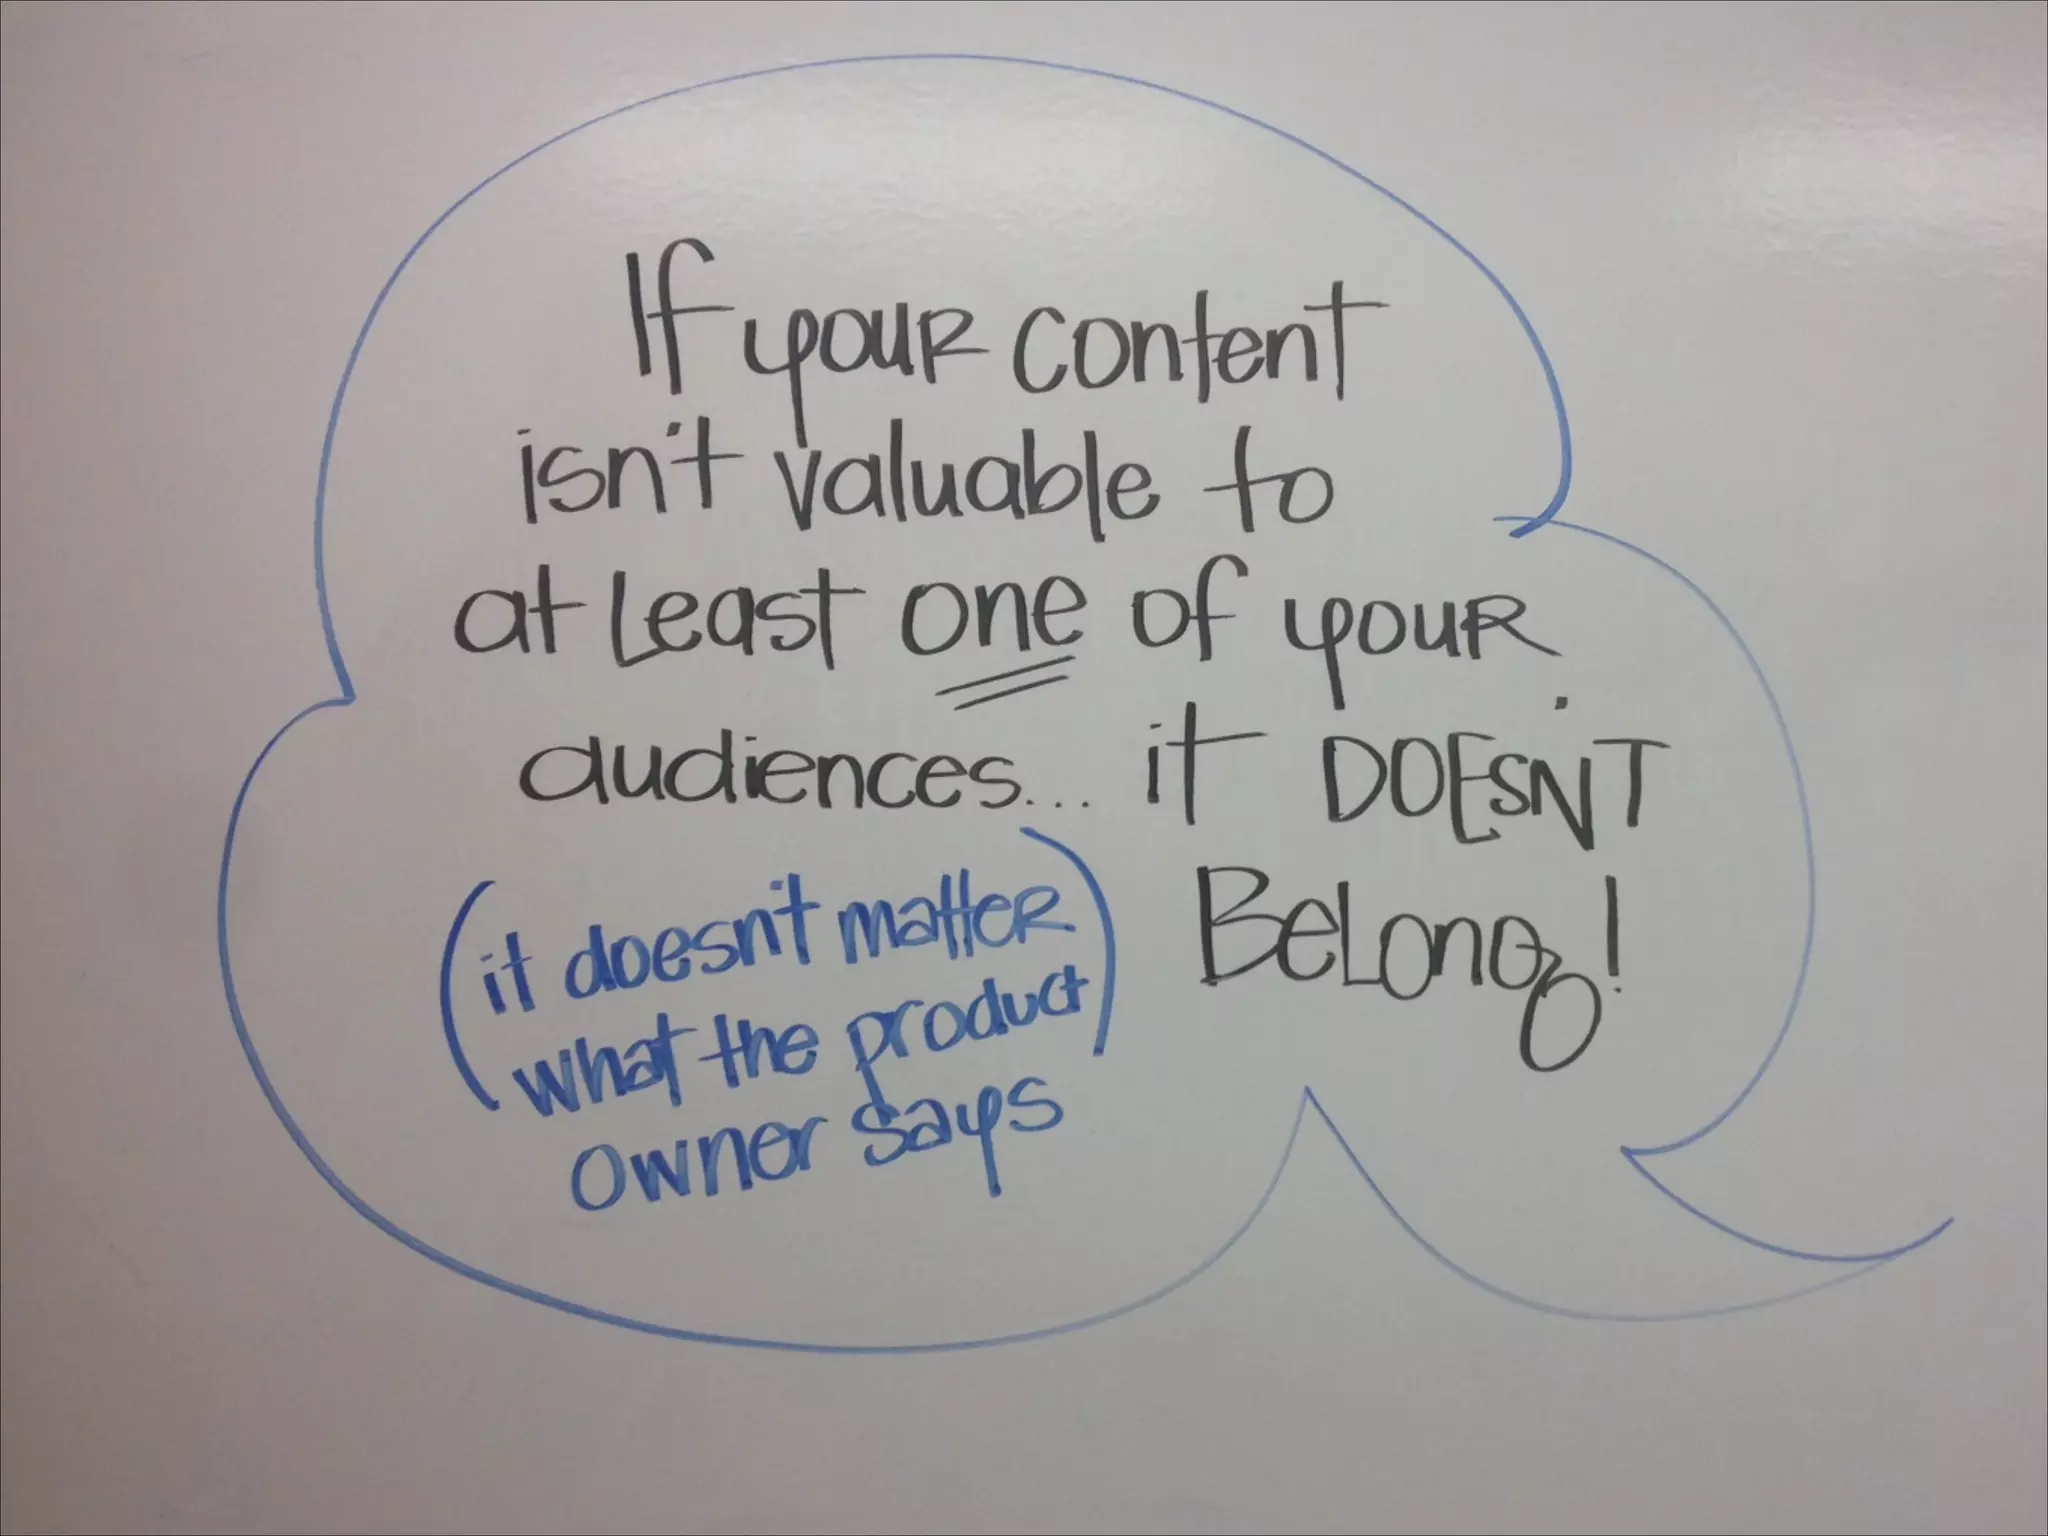 If your content
isn't valuable to
at least one of your
audiences... it DOESN'T
BeLong!
(it doesn't matter
what the product)
owner says